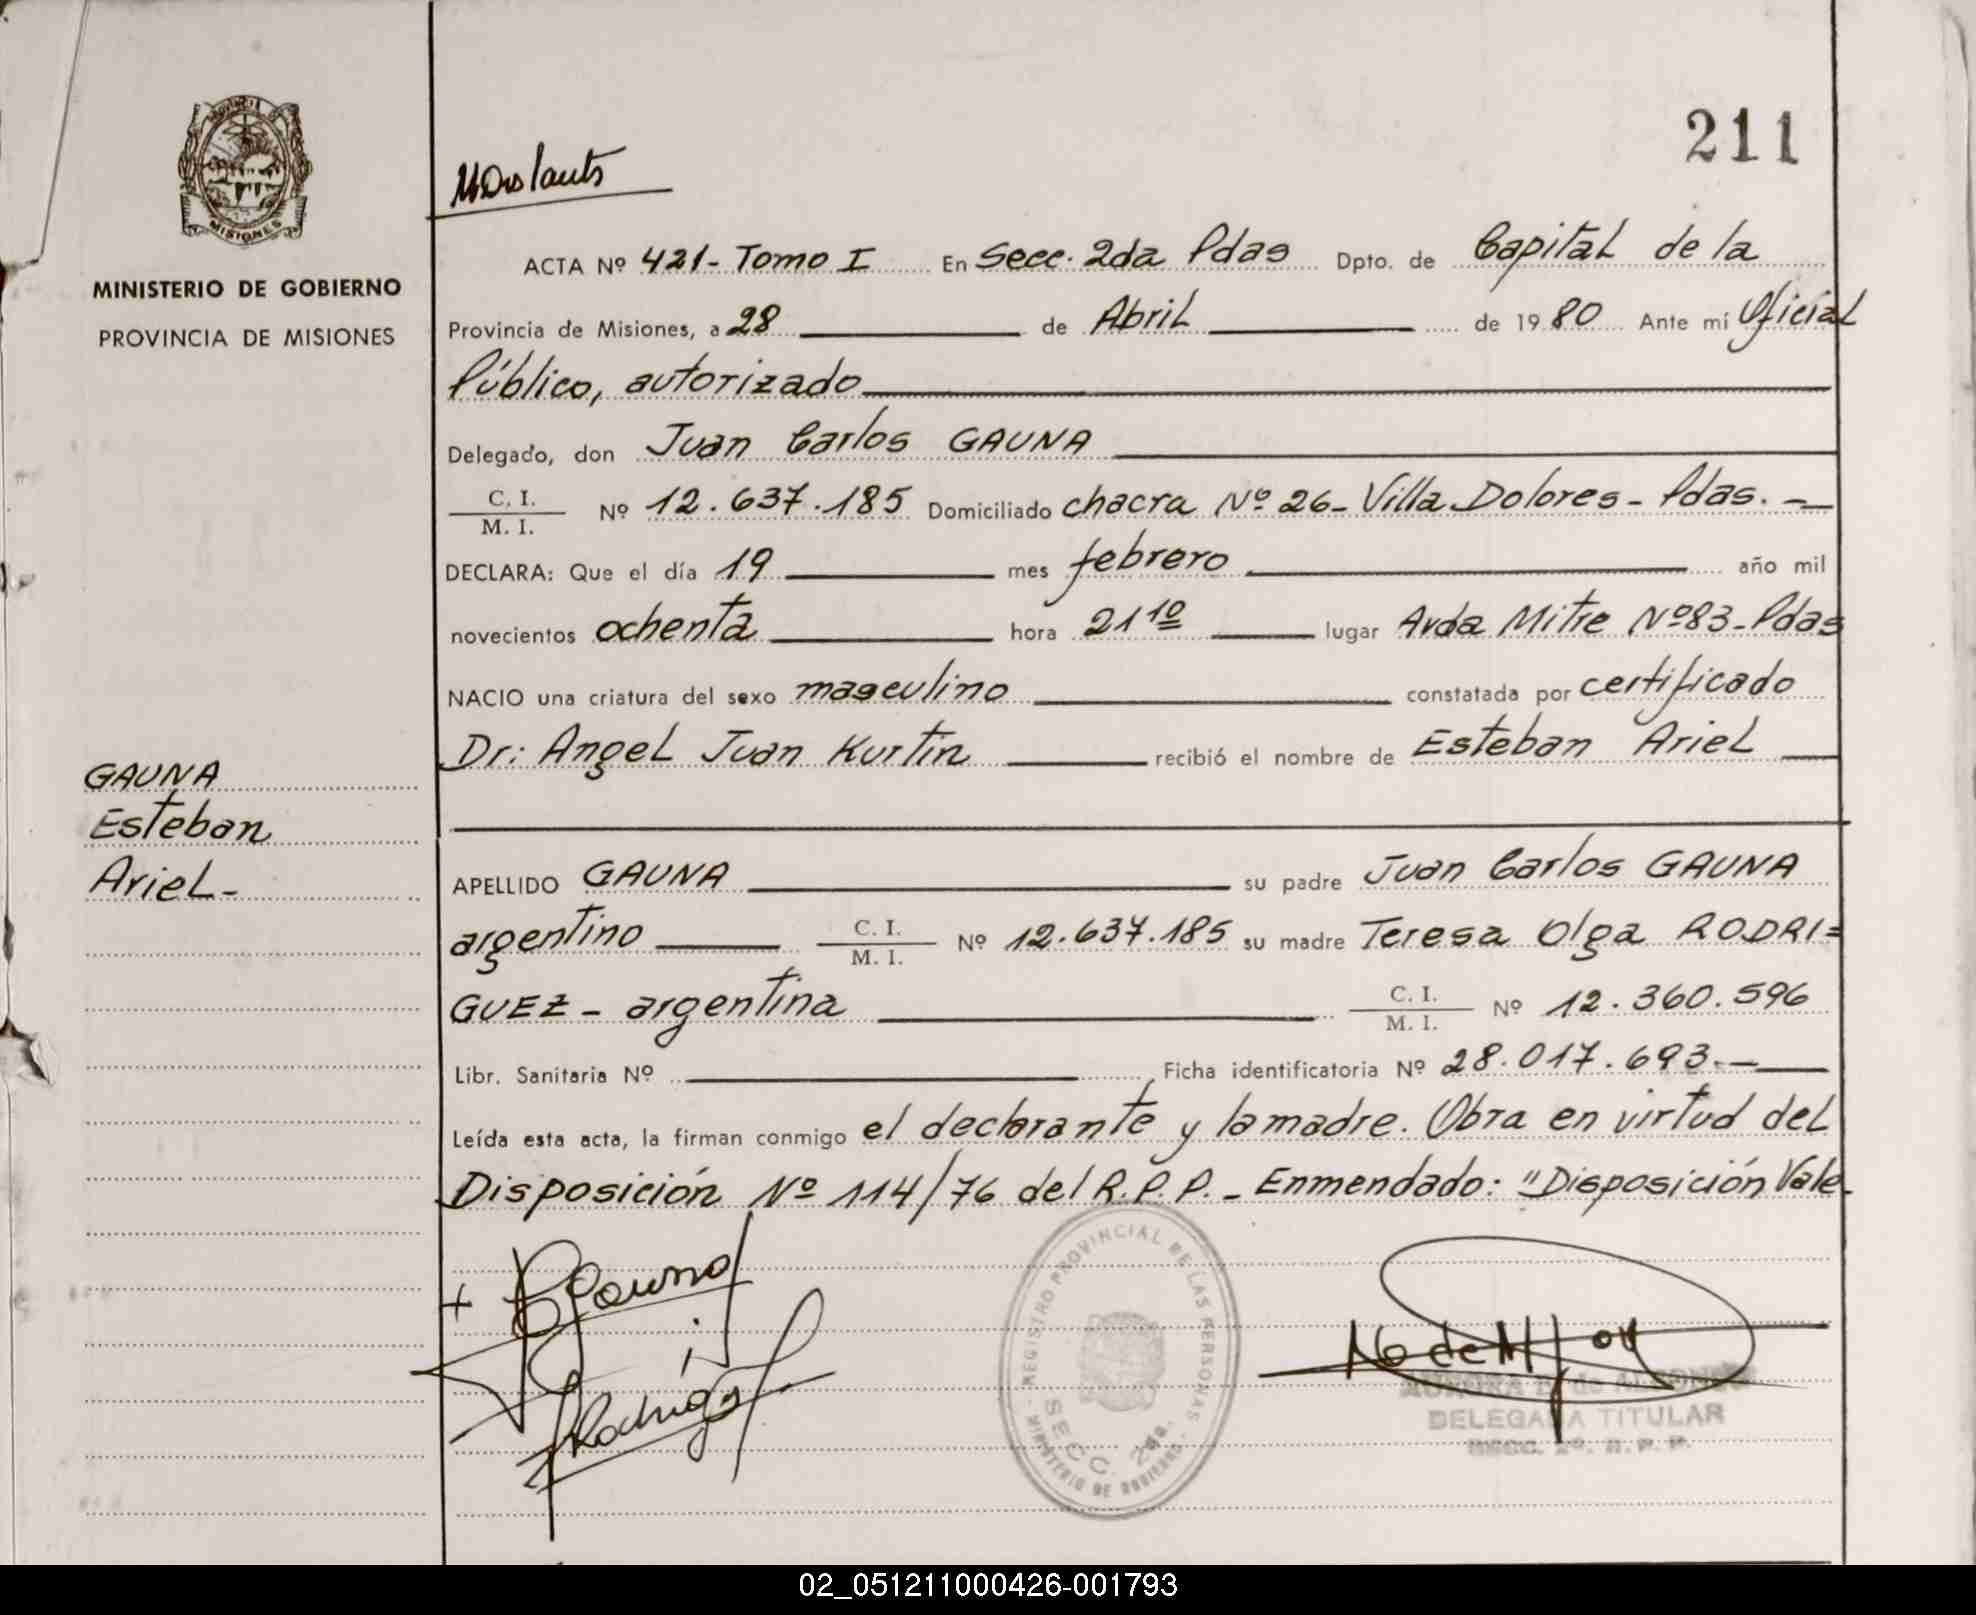 211
MISIONES
MINISTERIO DE GOBIERNO
PROVINCIA DE MISIONES
ACTA Nº 421- Tomo I En Secc. 2da Pdas Dpto. de Capital de la
Provincia de Misiones, a 28 de Abril de 1980 Ante mí Oficial
Público, autorizado
Delegado, don Juan Carlos GAUNA
C. I.
M. I. Nº 12.637.185 Domiciliado chacra Nº 26- Villa Dolores- Pdas.-
DECLARA: Que el día 19 mes febrero año mil
novecientos ochenta hora 21 10 lugar Avda Mitre Nº83-Pdas
NACIO una criatura del sexo masculino constatada por certificado
Dr: Angel Juan Kurtin recibió el nombre de Esteban Ariel
GAUNA
Esteban
Ariel-
APELLIDO GAUNA su padre Juan Carlos GAUNA
argentino C. I.
M. I. Nº 12.637.185 su madre Teresa Olga RODRI=
GUEZ - argentina C. I.
M. I. Nº 12.360.596
Libr. Sanitaria Nº Ficha identificatoria Nº 28.017.693.-
Leída esta acta, la firman conmigo el declarante y la madre. Obra en virtud del
Disposición Nº 114/76 del R.P.P.- Enmendado: "Disposición Vale-
+ Gauna
Rodrigo
REGISTRO PROVINCIAL DE LAS PERSONAS
SECC. 2da.
MINISTERIO DE GOBIERNO
DELEGADA TITULAR
SECC. 2º. R. P. P.
02_051211000426-001793